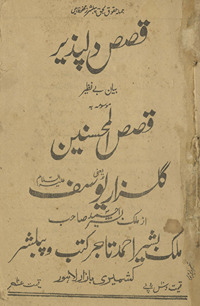 جملہ حقوق بحق ناشر محفوظ ہیں
قصص دلپذیر
بیان بے نظیر
موسومہ بہ
قصص المحسنین
گلزار یوسف
از ملک بشیر احمد صاحب
ملک بشیر احمد تاجر کتب و پبلشر
کشمیری بازار لاہور
قیمت